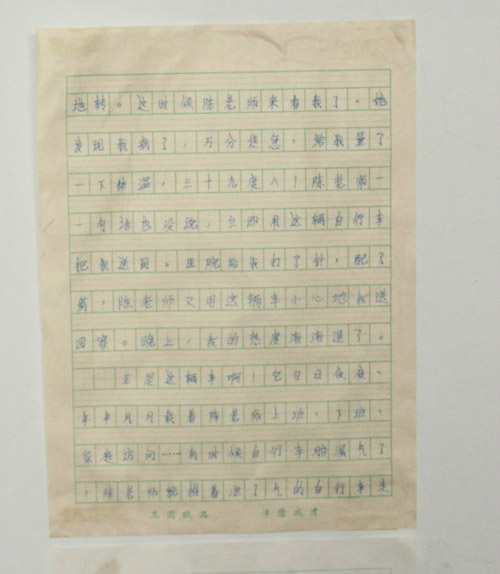 地转。这时候陈老师来看我了。她
发现我病了，万分焦急，给我量了
一下体温，三十九度八！陈老师一
一句话也没说，立即用这辆自行车
把我送到。医院给我打了针，配了
药，陈老师又用这辆车小心地把送
回家。晚上，我的热度渐渐退了。
正是这辆车啊！它白日夜夜、
年年月月载着陈老师上班、下班、
家庭访问……有时候自行车胎漏气了
，陈老师就推着泄了气的自行车走